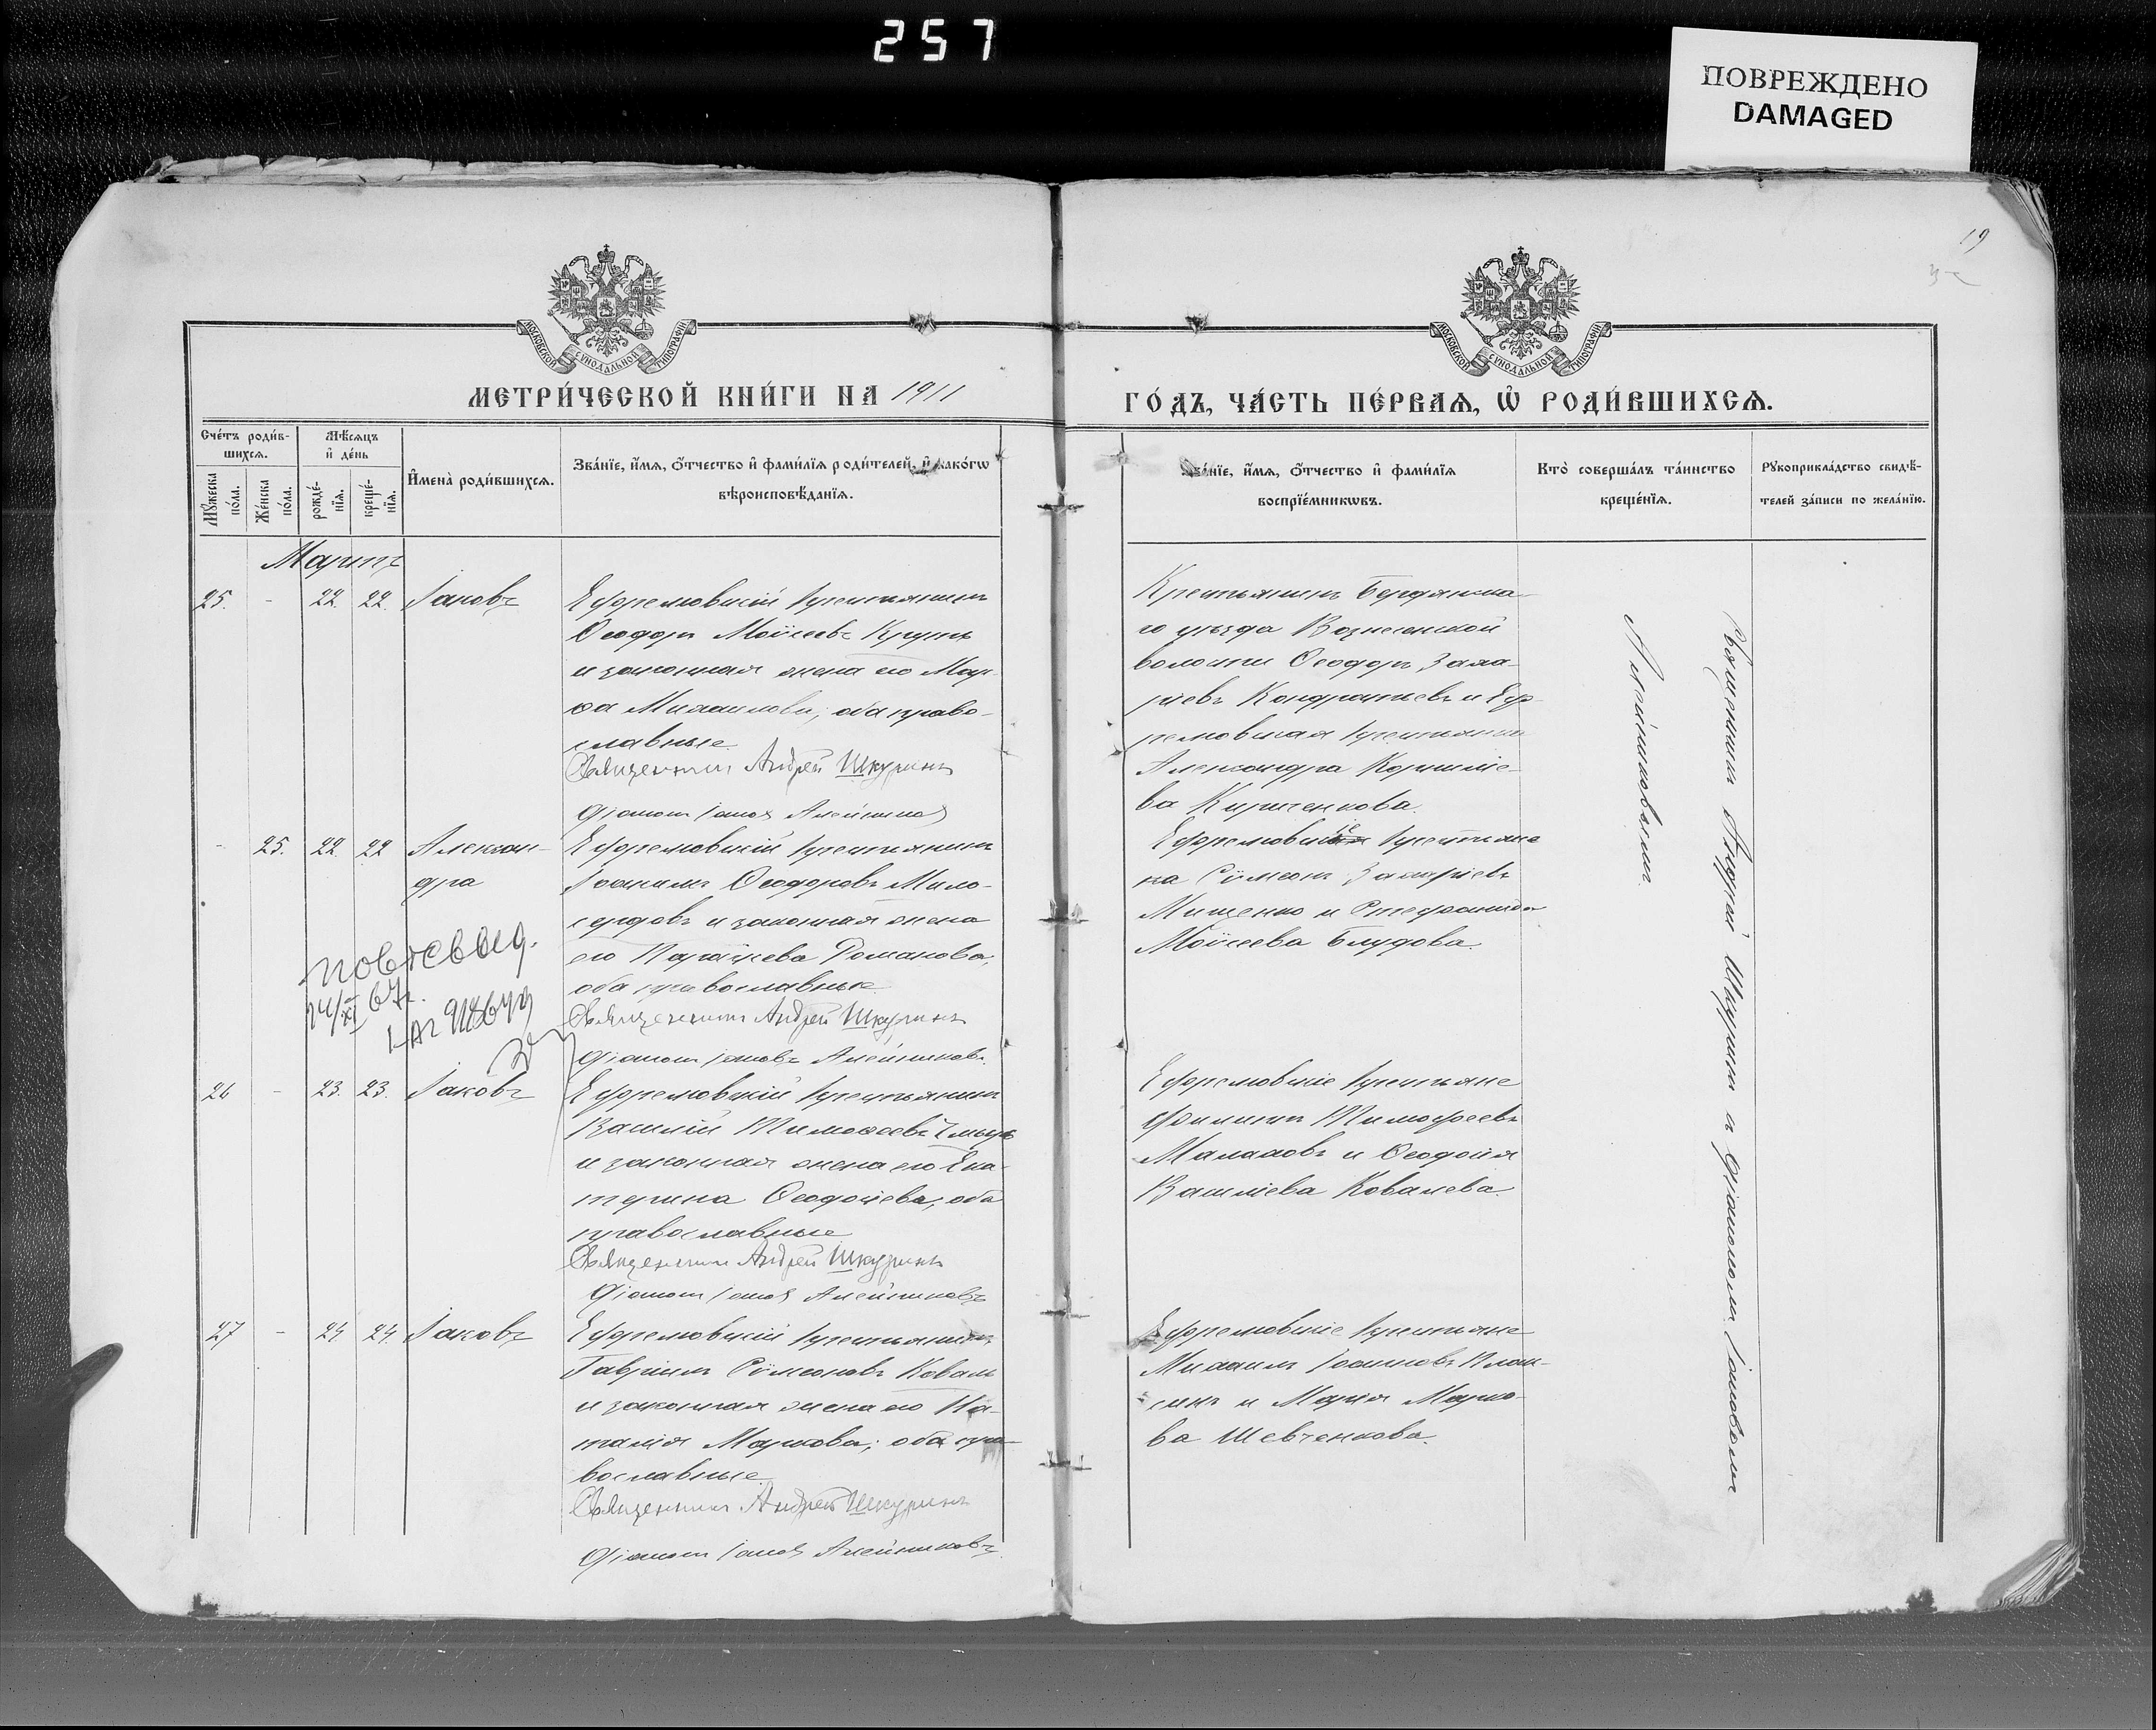 257
ПОВРЕЖДЕНО
DAMAGED
19
МОСКОВСКОЙ СѴНОДАЛЬНОЙ ТИПОГРАФІИ
МОСКОВСКОЙ СѴНОДАЛЬНОЙ ТИПОГРАФІИ
МЕТРИ́ЧЕСКОЙ КНИ́ГИ НА 1911
ГО́ДЪ, ЧА́СТЬ ПЕ́РВАЯ, Ѡ РОДИ́ВШИХСЯ.
Сче́тъ роди́в-
шихся.
Мѣ́сяцъ
и де́нь
Мꙋ́жеска по́ла.
Же́нска по́ла.
рожде́-
нїя.
креще́-
нїя.
Имена̀ роди́вшихся.
Зва́нїе, и́мя, о́тчество и фами́лїя роди́телей, и како́гѡ
вѣроисповѣ́данїя.
Зва́нїе, и́мя, о́тчество и фами́лїя
воспрїе́мникѡвъ.
Кто̀ соверша́лъ та́инство
креще́нїя.
Рꙋкоприкла́дство свидѣ́-
телей за́писи по жела́нїю.
Мартъ
25. - 22. 22. Іаковъ
Ефремовскій крестьянинъ
Ѳеодоръ Моѵсеевъ Крутъ
и законная жена его Мар-
ѳа Михаилова, оба право-
славные.
Священникъ Андрей Шкуринъ
Діаконъ Іаковъ Алейников
Крестьянинъ Бердянска-
го уѣзда Вознесенской
волости Ѳеодоръ Заха-
ріевъ Кондратьевъ и Еф-
ремовская крестьянка
Александра Корниліе-
ва Кириченкова.
- 25. 22 22 Алексан-
дра
Ефремовскій крестьянинъ
Іоакимъ Ѳеодоровъ Мило-
сердовъ и законная жена
его Параскева Романова,
оба православные
Священникъ Андрей Шкуринъ
Діаконъ Іаковъ Алейниковъ.
Ефремовскіе крестьяне
Сѵмеонъ Захаріевъ
Мищенко и Стефанида
Моѵсеева Блудова.
повт свид.
24/XI 67г.
26 - 23. 23. Іаковъ
Ефремовскій крестьянинъ
Василій Тимоѳеевъ
и законная жена его Ека-
терина Ѳеодосіева, оба
православные
Священникъ Андрей Шкуринъ
Діаконъ Іаковъ Алейниковъ
Ефремовскіе крестьяне
Филиппъ Тимофеевъ
Малаховъ и Ѳеодосія
Василіева Ковалева.
27 - 24 24. Іаковъ
Ефремовскій крестьянинъ
Гавріилъ Сѵмеоновъ Коваль
и законная жена его На-
талія Маркова; оба пра-
вославные.
Священникъ Андрей Шкуринъ
Діаконъ Іаковъ Алейниковъ
Ефремовскіе крестьяне
Михаилъ Іоанновъ
и Марія Марко-
ва Шевченкова.
Священникъ Андрей Шкуринъ с діакономъ Іаковомъ
Алейниковымъ.